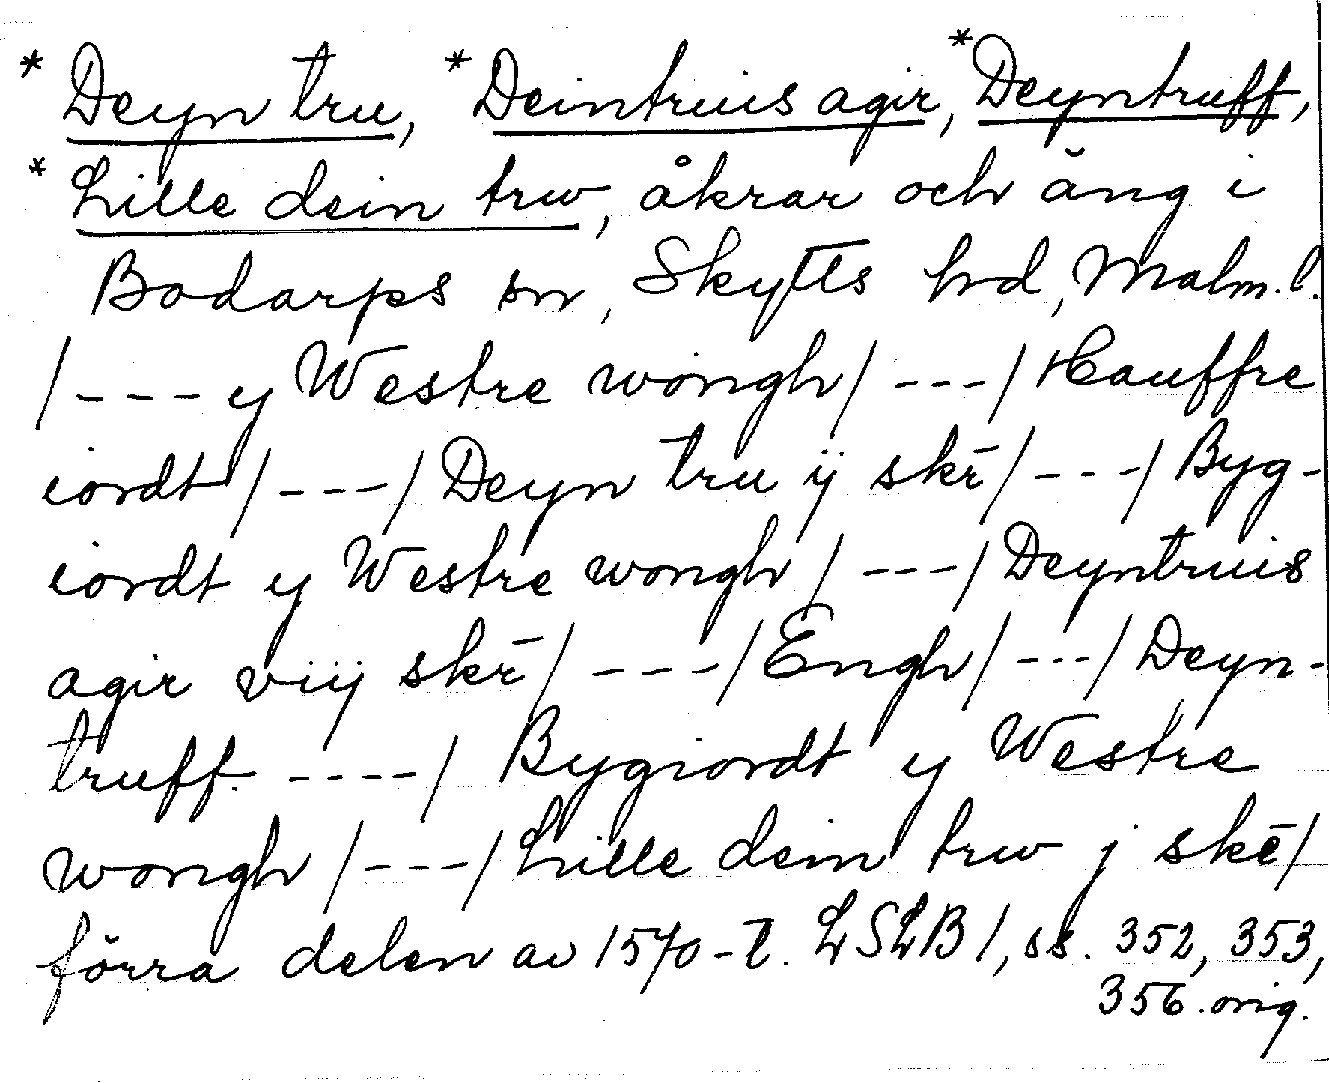 * Deyn tru, * Deintruis agir, * Deyntruff,
* Lille dein trw, åkrar och äng i
Bodarps sn, Skytts hd, Malm. l.
/---y Westre wongh/---/Hauffre
iordt/---/Deyn tru ij skē/---/Byg-
iordt y Westre wongh/---/Deyntruis
agir viij skē/---/Engh/---/Deyn-
truff. ----/ Bygiordt y Westre
wongh/---/Lille dein trw j skē/
förra delen av 1570-t. LSLB 1, ss. 352, 353,
356. orig.